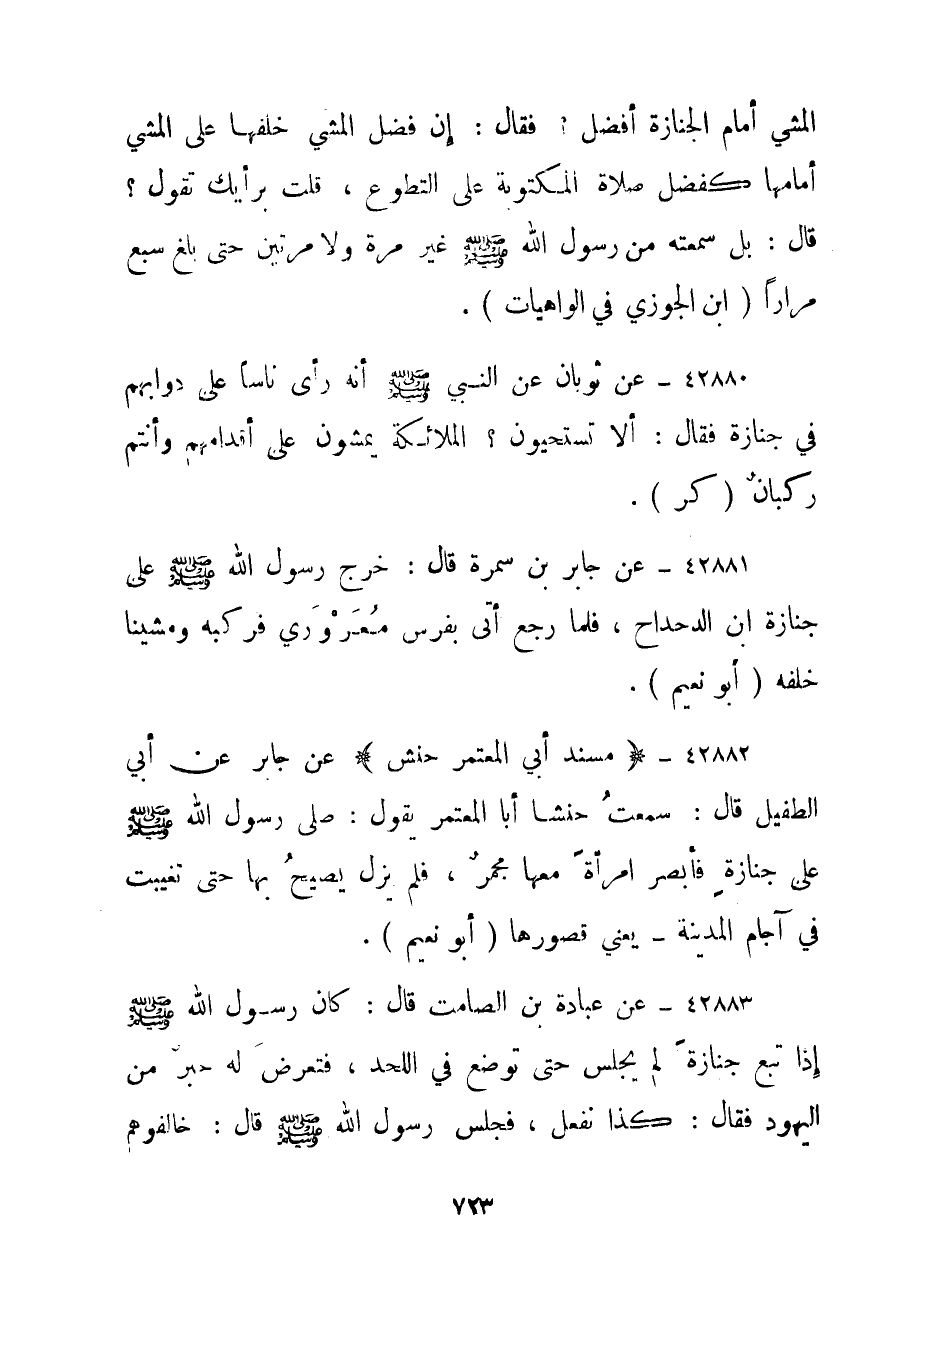 المشي أمام الجنازة أفضل ؟ فقال : إن فضل المشي خلفها على المشي
أمامها كفضل صلاة المكتوبة على التطوع ، قلت برأيك تقول ؟
قال : بل سمعته من رسول الله ﷺ غير مرة ولا مرتين حتى بلغ سبع
مراراً ( ابن الجوزي في الواهيات ) .
٤٢٨٨٠ ـ عن ثوبان عن النبي ﷺ أنه رأى ناساً على دوابهم
في جنازة فقال : ألا تستحيون ؟ الملائكة يمشون على أقدامهم وأنتم
ركبانٌ ( كر ) .
٤٢٨٨١ ـ عن جابر بن سمرة قال : خرج رسول الله ﷺ على
جنازة ابن الدحداح ، فلما رجع أتى بفرس مُعَرْوَري فركبه ومشينا
خلفه ( أبو نعيم ) .
٤٢٨٨٢ ـ ﴿ مسند أبي المعتمر حنش ﴾ عن جابر عن أبي
الطفيل قال : سمعتُ حنشا أبا المعتمر يقول : صلى رسول الله ﷺ
على جنازةٍ فأبصر امرأةً معها مجمرٌ ، فلم يزل يصيحُ بها حتى تغيبت
في آجام المدينة ـ يعني قصورها ( أبو نعيم ) .
٤٢٨٨٣ ـ عن عبادة بن الصامت قال : كان رسول الله ﷺ
إذا تبع جنازةً لم يجلس حتى توضع في اللحد ، فتعرضَ له حبرٌ من
اليهود فقال : كذا نفعل ، فجلس رسول الله ﷺ قال : خالفوهم
٧٢٣